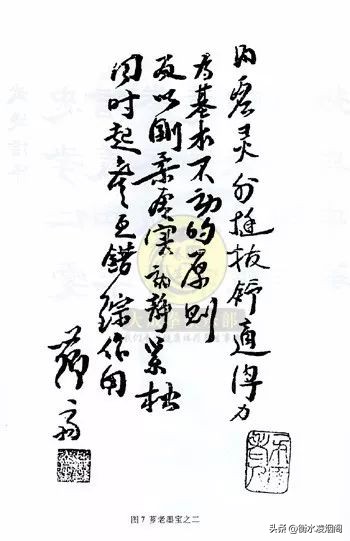 内虚灵外挺拔舒适得力
为基本不动的原则
及以刚柔虚实动静紧松
同时起参互错综作用
芗斋
图 7 芗老墨宝之二
头条 @衡水凌烟阁